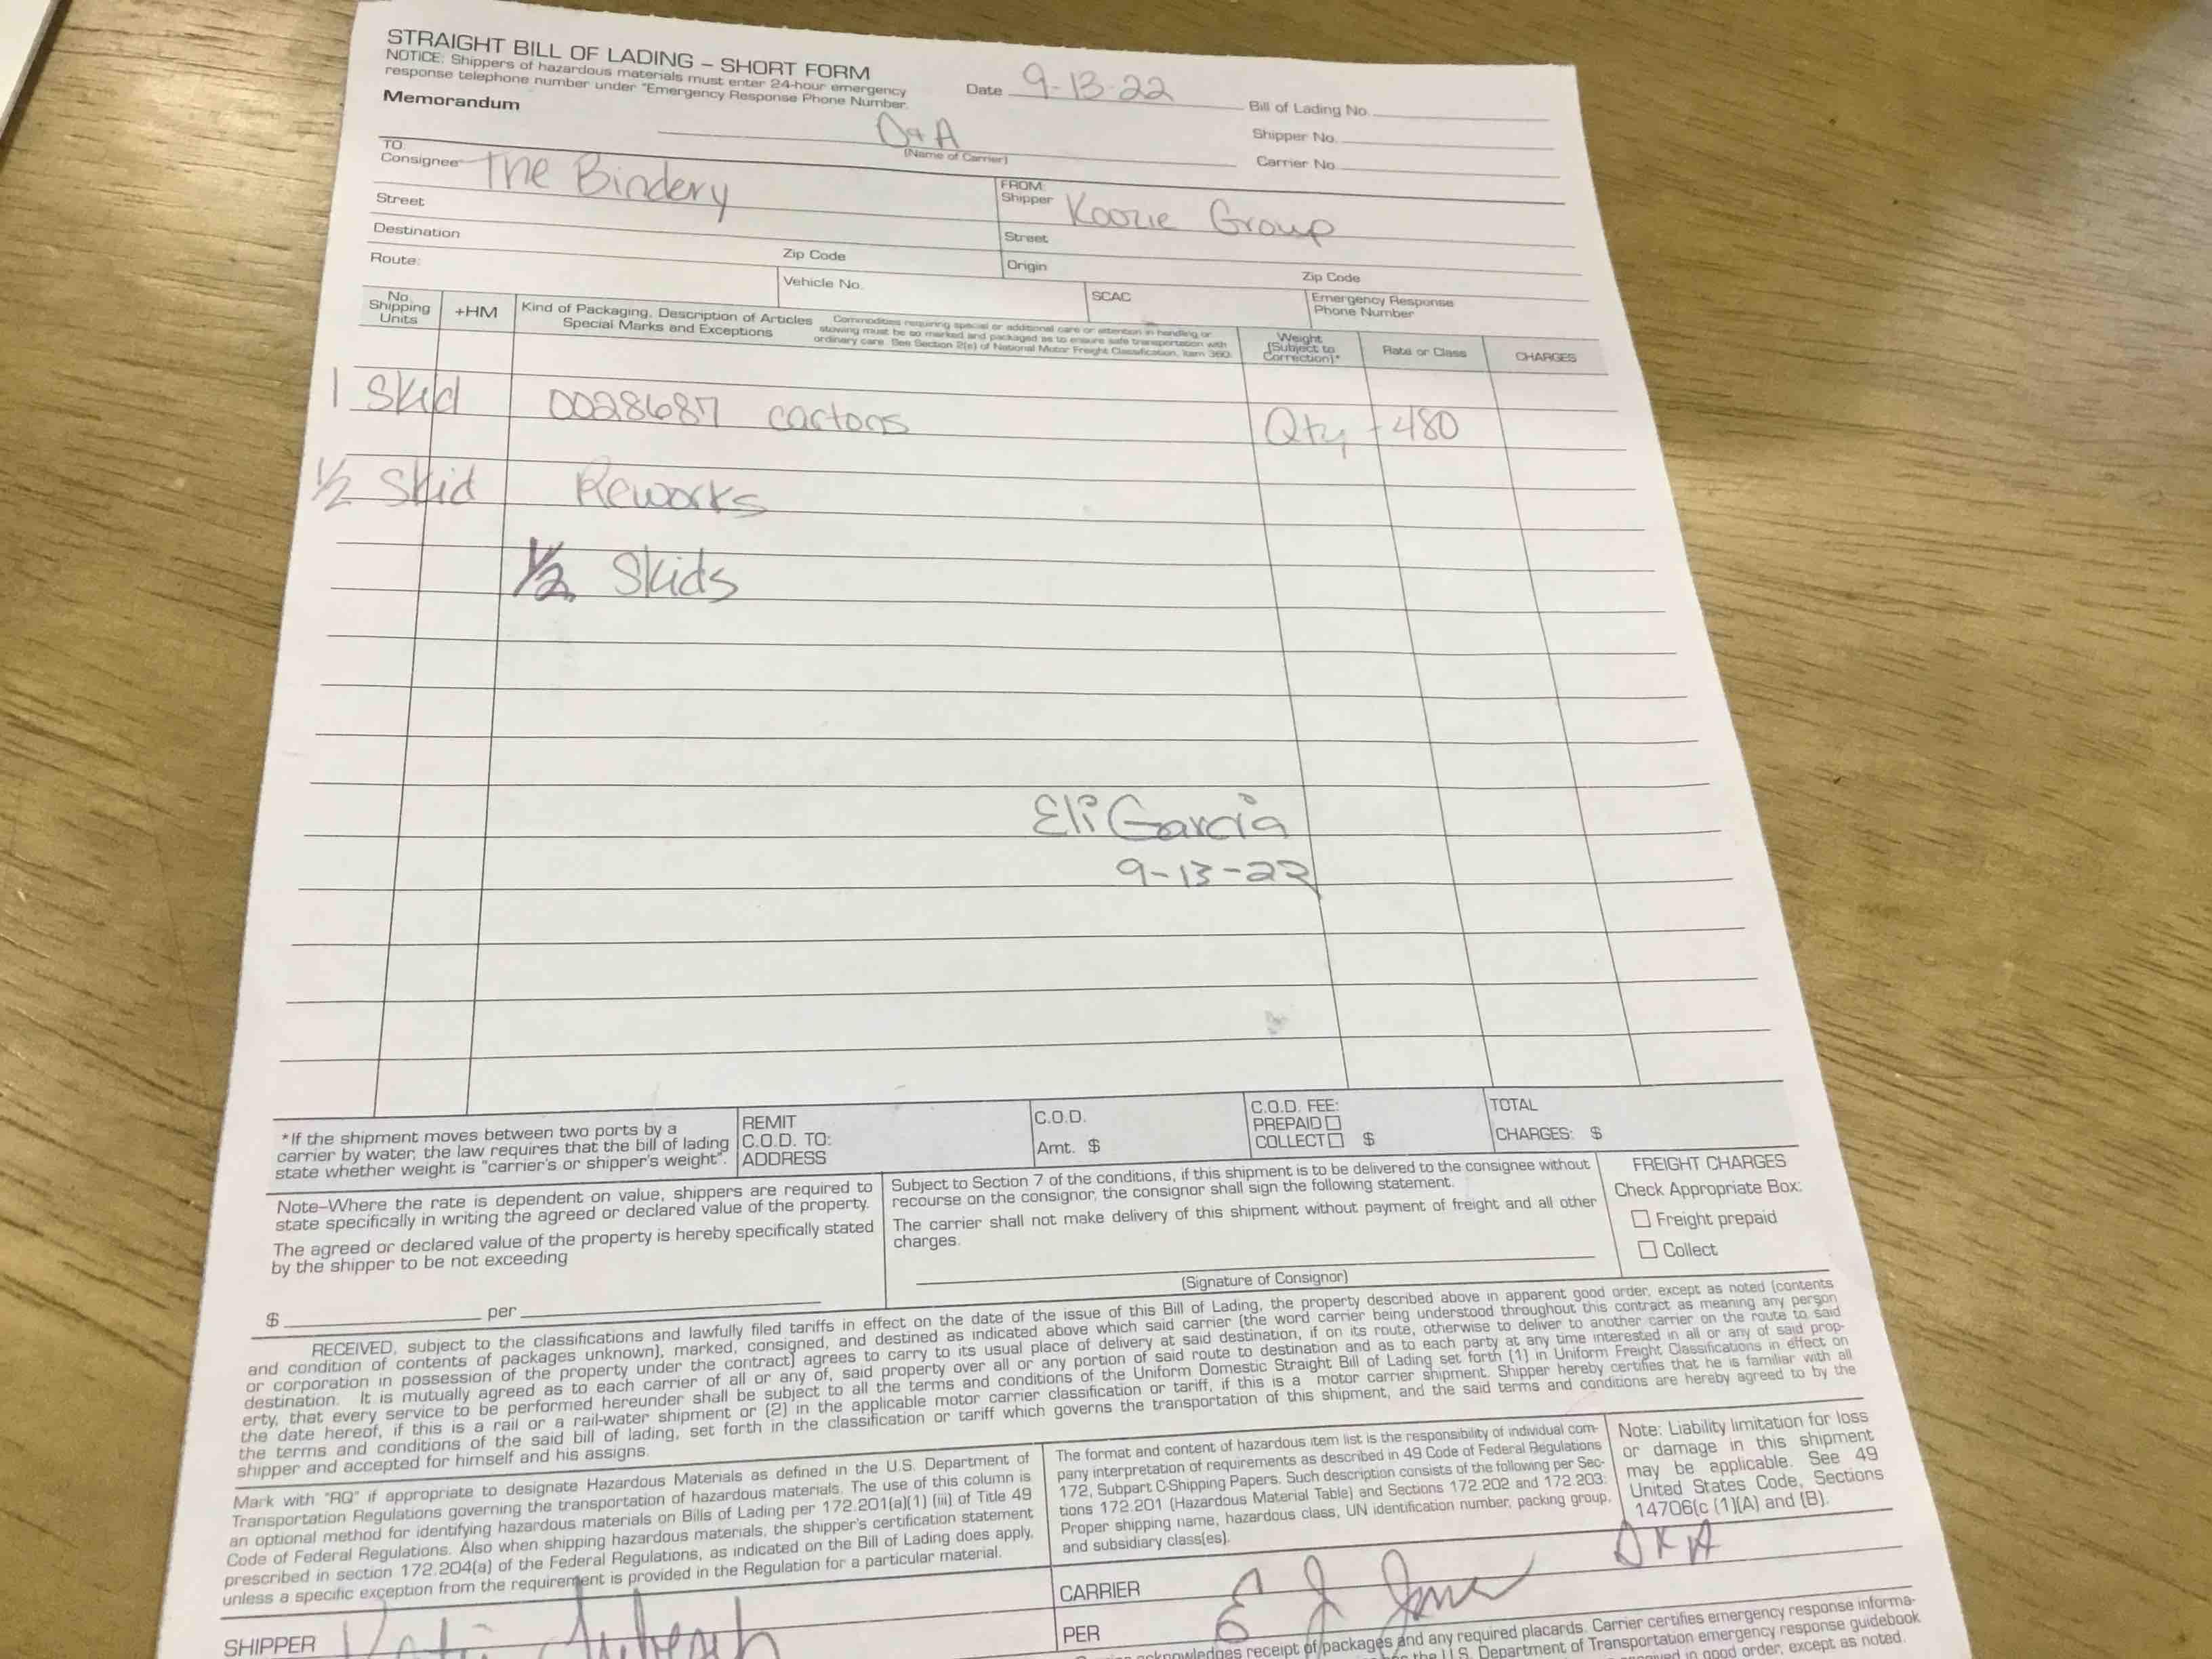 STRAIGHT BILL OF LADING – SHORT FORM
NOTICE: Shippers of hazardous materials must enter 24-hour emergency
response telephone number under "Emergency Response Phone Number.
Memorandum
Date 9-13-22
Bill of Lading No.
Shipper No.
Carrier No.
D&A
(Name of Carrier)
TO:
Consignee The Bindery
Street
Destination
Zip Code
Route:
Vehicle No.
FROM:
Shipper Koozie Group
Street
Origin
Zip Code
SCAC
Emergency Response
Phone Number
No.
Shipping
Units
+HM
Kind of Packaging, Description of Articles
Special Marks and Exceptions
Commodities requiring special or additional care or attention in handling or
stowing must be so marked and packaged as to ensure safe transportation with
ordinary care. See Section 2(e) of National Motor Freight Classification, Item 360.
Weight
(Subject to
Correction)*
Rate or Class
CHARGES
1 Skid 0028687 cartons Qty - 480
1/2 Skid Reworks
1/2 Skids
Eli Garcia
9-13-22
*If the shipment moves between two ports by a
carrier by water, the law requires that the bill of lading
state whether weight is "carrier's or shipper's weight".
REMIT
C.O.D. TO:
ADDRESS
C.O.D.
Amt. $
C.O.D. FEE:
PREPAID
COLLECT $
TOTAL
CHARGES: $
Note–Where the rate is dependent on value, shippers are required to
state specifically in writing the agreed or declared value of the property.
The agreed or declared value of the property is hereby specifically stated
by the shipper to be not exceeding
$ per
Subject to Section 7 of the conditions, if this shipment is to be delivered to the consignee without
recourse on the consignor, the consignor shall sign the following statement.
The carrier shall not make delivery of this shipment without payment of freight and all other
charges.
(Signature of Consignor)
FREIGHT CHARGES
Check Appropriate Box:
Freight prepaid
Collect
RECEIVED, subject to the classifications and lawfully filed tariffs in effect on the date of the issue of this Bill of Lading, the property described above in apparent good order, except as noted (contents
and condition of contents of packages unknown), marked, consigned, and destined as indicated above which said carrier (the word carrier being understood throughout this contract as meaning any person
or corporation in possession of the property under the contract) agrees to carry to its usual place of delivery at said destination, if on its route, otherwise to deliver to another carrier on the route to said
destination. It is mutually agreed as to each carrier of all or any of, said property over all or any portion of said route to destination and as to each party at any time interested in all or any of said prop-
erty, that every service to be performed hereunder shall be subject to all the terms and conditions of the Uniform Domestic Straight Bill of Lading set forth (1) in Uniform Freight Classifications in effect on
the date hereof, if this is a rail or a rail-water shipment or (2) in the applicable motor carrier classification or tariff, if this is a motor carrier shipment. Shipper hereby certifies that he is familiar with all
the terms and conditions of the said bill of lading, set forth in the classification or tariff which governs the transportation of this shipment, and the said terms and conditions are hereby agreed to by the
shipper and accepted for himself and his assigns.
Mark with "RQ" if appropriate to designate Hazardous Materials as defined in the U.S. Department of
Transportation Regulations governing the transportation of hazardous materials. The use of this column is
an optional method for identifying hazardous materials on Bills of Lading per 172.201(a)(1) (iii) of Title 49
Code of Federal Regulations. Also when shipping hazardous materials, the shipper's certification statement
prescribed in section 172.204(a) of the Federal Regulations, as indicated on the Bill of Lading does apply,
unless a specific exception from the requirement is provided in the Regulation for a particular material.
The format and content of hazardous item list is the responsibility of individual com-
pany interpretation of requirements as described in 49 Code of Federal Regulations
172, Subpart C-Shipping Papers. Such description consists of the following per Sec-
tions 172.201 (Hazardous Material Table) and Sections 172.202 and 172.203:
Proper shipping name, hazardous class, UN identification number, packing group,
and subsidiary class(es).
Note: Liability limitation for loss
or damage in this shipment
may be applicable. See 49
United States Code, Sections
14706(c (1)(A) and (B).
SHIPPER
CARRIER
PER
receipt of packages and any required placards. Carrier certifies emergency response informa-
the U.S. Department of Transportation emergency response guidebook
in good order, except as noted.